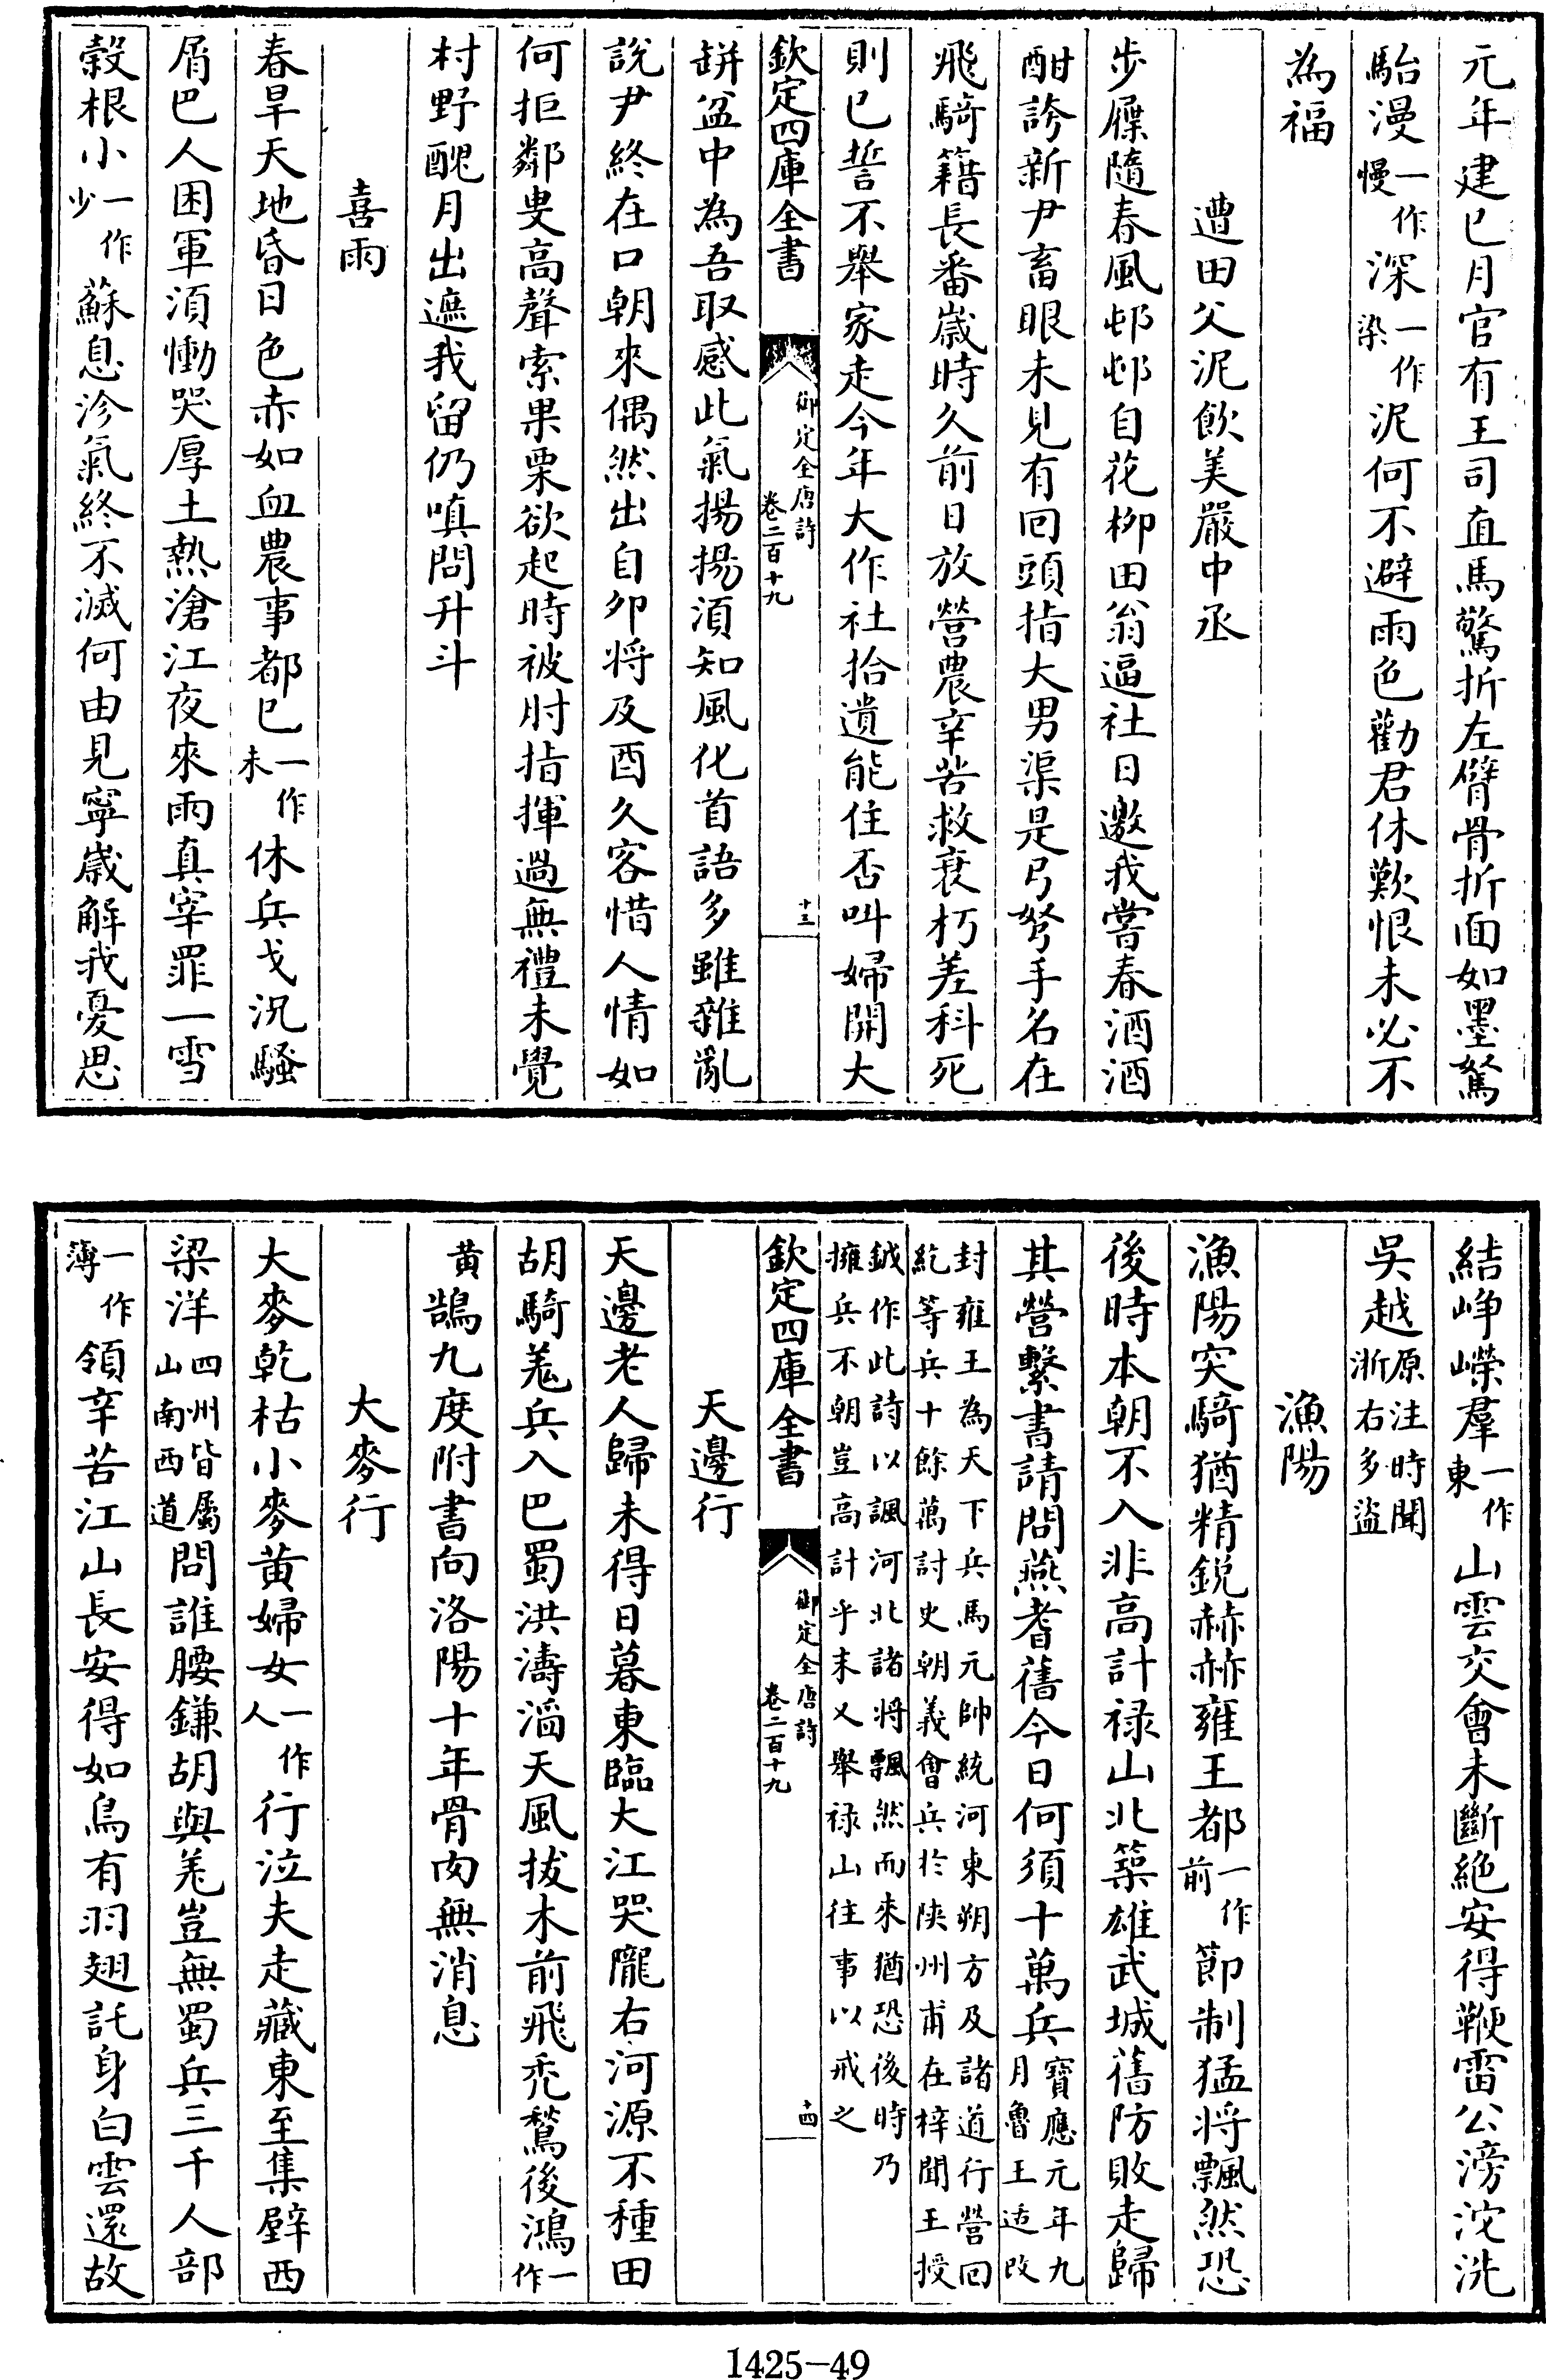 元年建巳月官有王司直馬驚折左臂骨折面如墨駑
駘漫一作慢深一作染泥何不避雨色勸君休歎恨未必不
為福
遭田父泥飲美嚴中丞
步屧隨春風邨邨自花柳田翁逼社日邀我嘗春酒酒
酣誇新尹畜眼未見有回頭指大男渠是弓弩手名在
飛騎籍長番歲時久前日放營農辛苦救衰朽差科死
則已誓不舉家走今年大作社拾遺能住否叫婦開大
欽定四庫全書 御定全唐詩 卷二百十九 十三
缾盆中為吾取感此氣揚揚須知風化首語多雖雜亂
說尹終在口朝來偶然出自卯將及酉久客惜人情如
何拒鄰叟高聲索果栗欲起時被肘指揮過無禮未覺
村野醜月出遮我留仍嗔問升斗
喜雨
春旱天地昏日色赤如血農事都已一作未休兵戈況騷
屑巴人困軍須慟哭厚土熱滄江夜來雨真宰罪一雪
穀根小一作少蘇息沴氣終不滅何由見寧歲解我憂思
結崢嶸羣一作東山雲交會未斷絕安得鞭雷公滂沱洗
吳越原注時聞浙右多盜
漁陽
漁陽突騎猶精銳赫赫雍王都一作前節制猛將飄然恐
後時本朝不入非高計祿山北築雄武城舊防敗走歸
其營繫書請問燕耆舊今日何須十萬兵寶應元年九月魯王适改
封雍王為天下兵馬元帥統河東朔方及諸道行營回紇等兵十餘萬討史朝義會兵於陝州甫在梓聞王授
鉞作此詩以諷河北諸將飄然而來猶恐後時乃擁兵不朝豈高計乎末又舉祿山往事以戒之
欽定四庫全書 御定全唐詩 卷二百十九 十四
天邊行
天邊老人歸未得日暮東臨大江哭隴右河源不種田
胡騎羌兵入巴蜀洪濤滔天風拔木前飛禿鶖後鴻一作
黃鵠九度附書向洛陽十年骨肉無消息
大麥行
大麥乾枯小麥黃婦女一作人行泣夫走藏東至集壁西
梁洋四州皆屬山南西道問誰腰鎌胡與羌豈無蜀兵三千人部
一作簿領辛苦江山長安得如鳥有羽翅託身白雲還故
1425-49